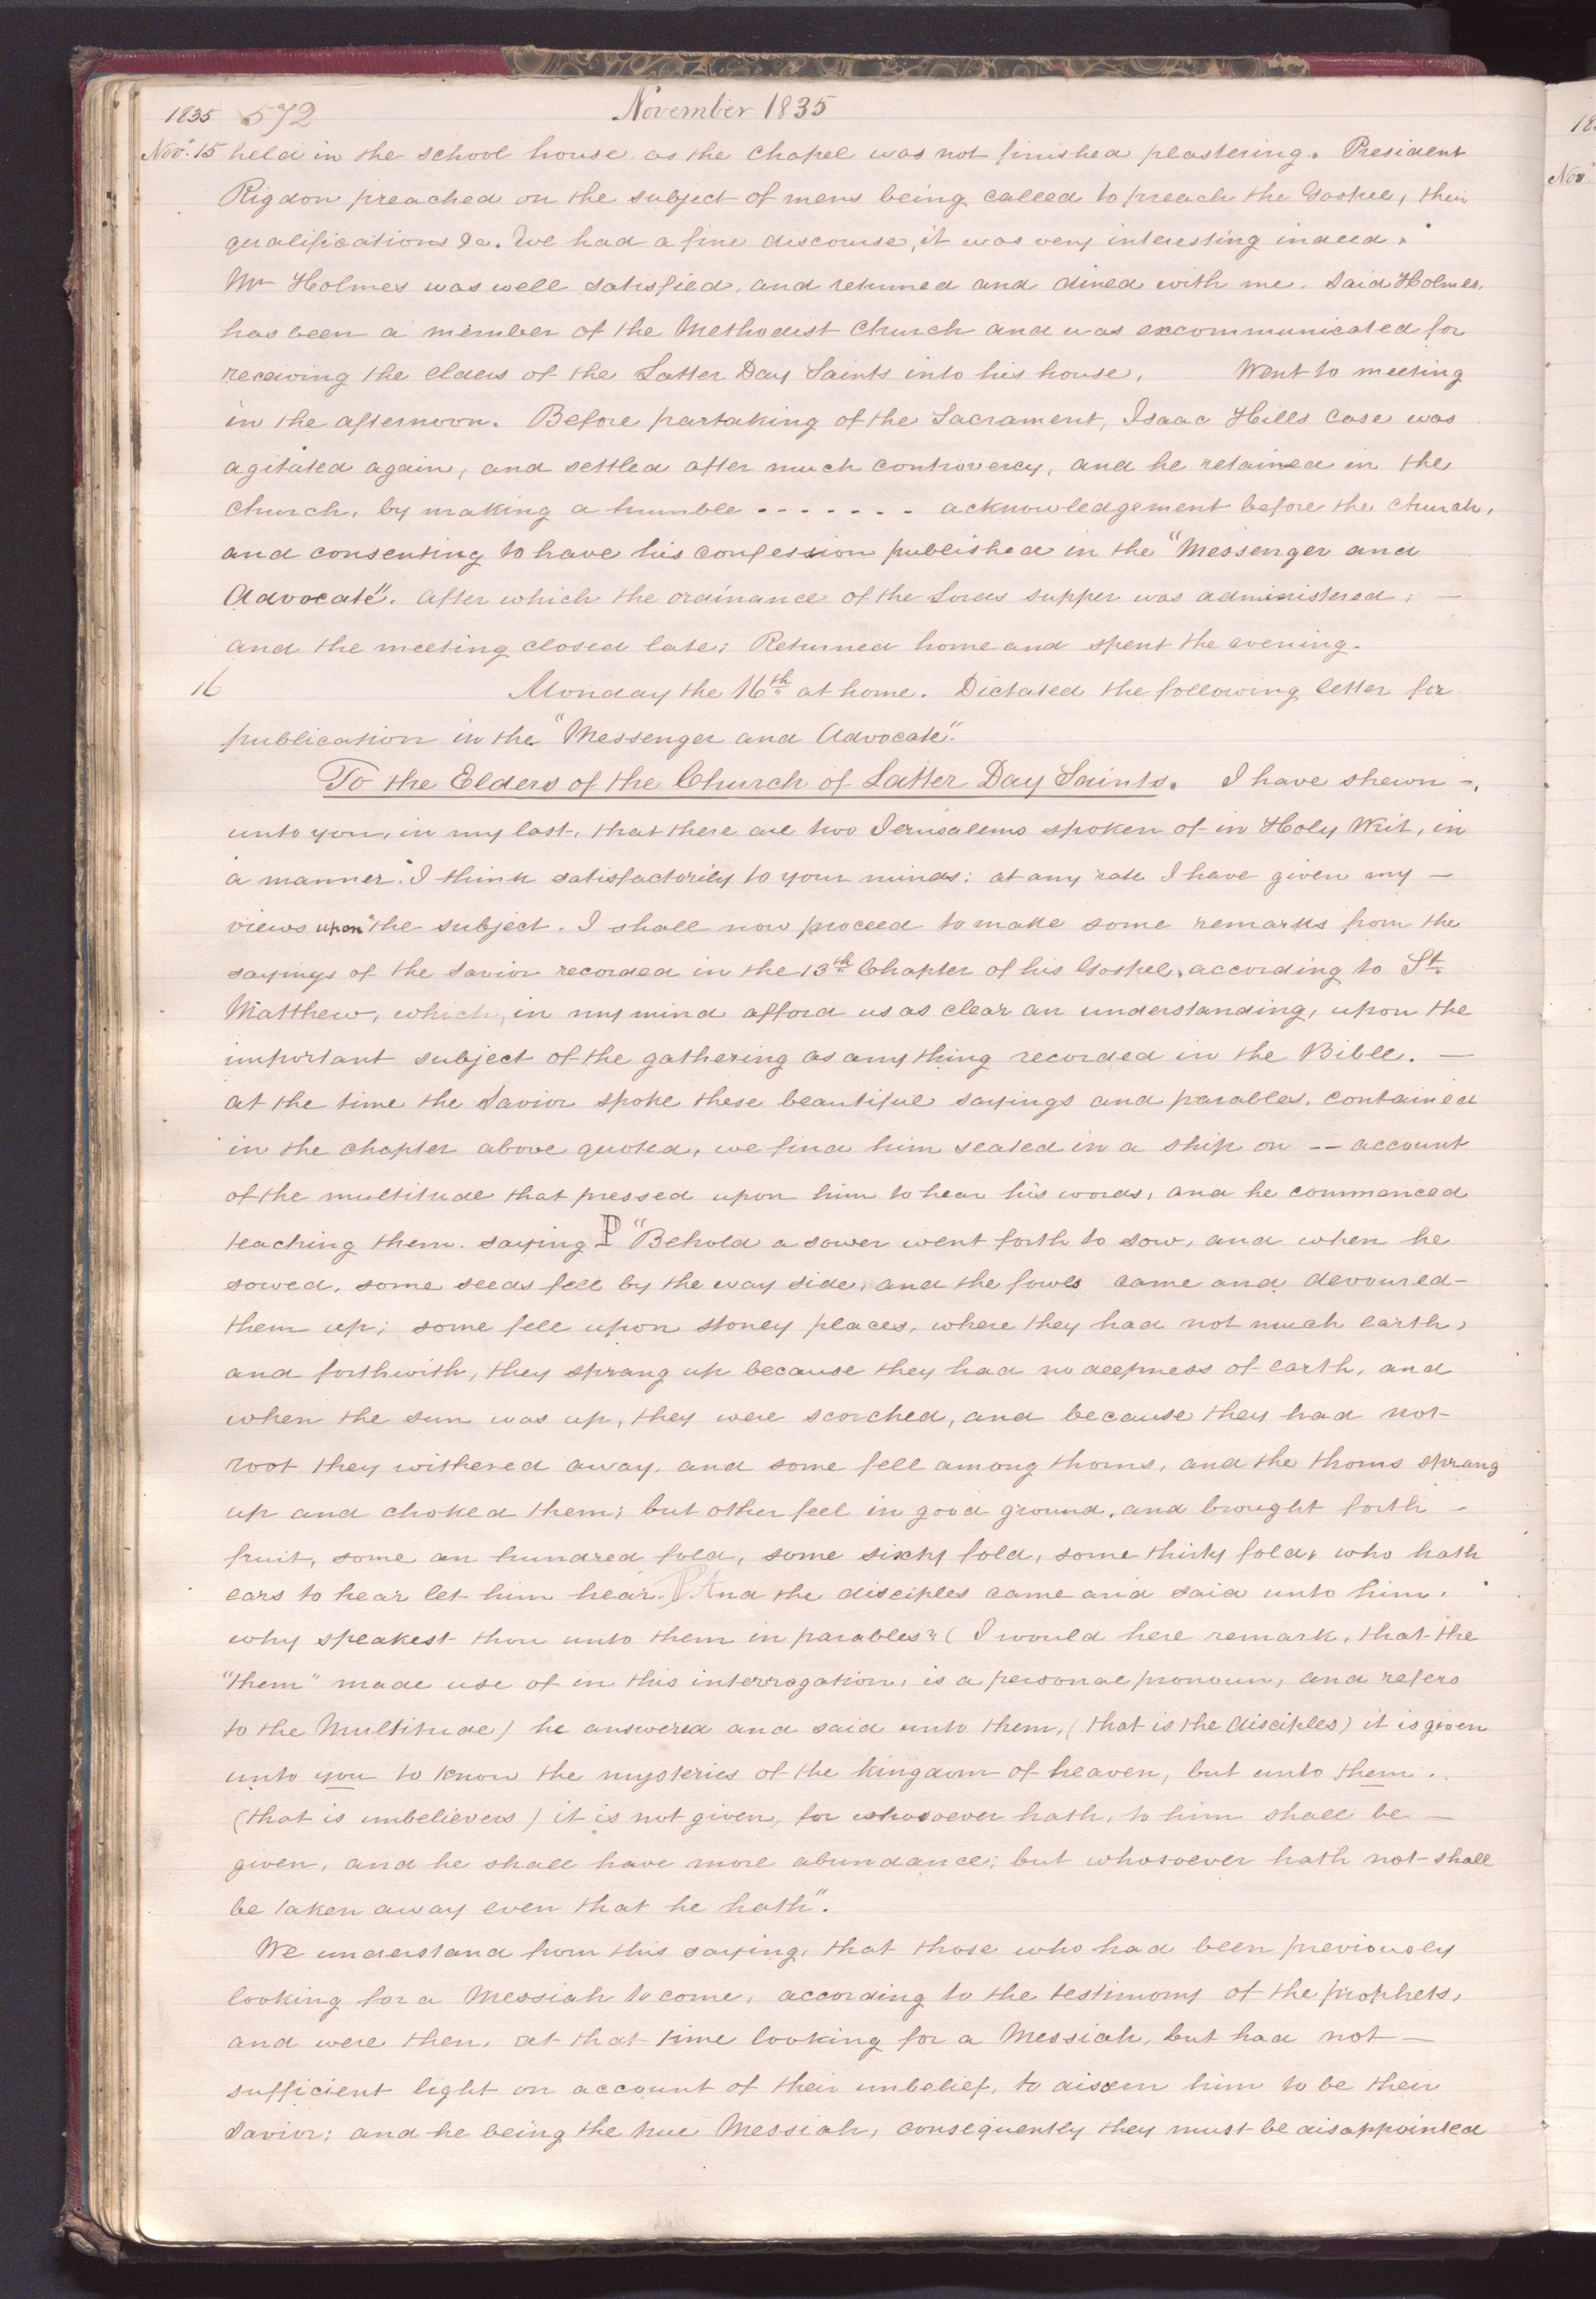 1835 572 November 1835
Nov. 15 held in the school house as the chapel was not finished plastering. President
Rigdon preached on the subject of mens being called to preach the Gospel, their
qualifications &c. We had a fine discourse, it was very interesting indeed.
Mr Holmes was well satisfied, and returned and dined with me. Said Holmes,
has been a member of the Methodist Church and was excommunicated for
receiving the elders of the Latter Day Saints into his house, Went to meeting
in the afternoon. Before partaking of the Sacrament, Isaac Hills case was
agitated again, and settled after much controvercy, and he retained in the
church, by making a humble - - - - - - - acknowledgement before the church,
and consenting to have his confession published in the "Messenger and
Advocate". After which the ordinance of the Lords supper was administered, —
and the meeting closed late; Returned home and spent the evening.
16 Monday the 16th at home. Dictated the following letter for
publication in the "Messenger and Advocate".
To the Elders of the Church of Latter Day Saints. I have shewn -,
unto you, in my last, that there are two Jerusalems spoken of in Holy Writ, in
a manner I think satisfactorily to your minds: at any rate I have given my —
views upon the subject. I shall now proceed to make some remarks from the
sayings of the Savior recorded in the 13th Chapter of his Gospel, according to St.
Matthew, which, in my mind afford us as clear an understanding, upon the
important subject of the gathering as any thing recorded in the Bible. —
at the time the Savior spoke these beautiful sayings and parables, contained
in the chapter above quoted, we find him seated in a ship on -- account
of the multitude that pressed upon him to hear his words, and he commenced
teaching them. saying ℙ "Behold a sower went forth to sow, and when he
sowed, some seeds fell by the way side, and the fowls came and devoured -
them up; some fell upon stoney places, where they had not much earth,
and forthwith, they sprang up because they had no deepness of earth, and
when the sun was up, they were scorched, and because they had not -
root they withered away, and some fell among thorns, and the thorns sprang
up and choked them; but other feel in good ground, and brought forth -
fruit, some an hundred fold, some sixty fold, some thirty fold, who hath
ears to hear let him hear. ℙ And the disciples came and said unto him,
why speakest thou unto them in parables? (I would here remark, that the
"them" made use of in this interrogation, is a personal pronoun, and refers
to the Multitude) he answered and said unto them, (that is the disciples) it is given
unto you to know the mysteries of the kingdom of heaven, but unto them.
(that is unbelievers) it is not given, for whosoever hath, to him shall be —
given, and he shall have more abundance; but whosoever hath not shall
be taken away even that he hath".
We understand from this saying, that those who had been previously
looking for a Messiah to come, according to the testimony of the prophets,
and were then, at that time looking for a Messiah, but had not —
sufficient light on account of their unbelief, to discern him to be their
Savior; and he being the true Messiah, consequently they must be disappointed
18
Nov